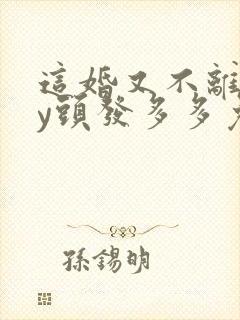 這婚又不離
y頭發多多
孫錫明